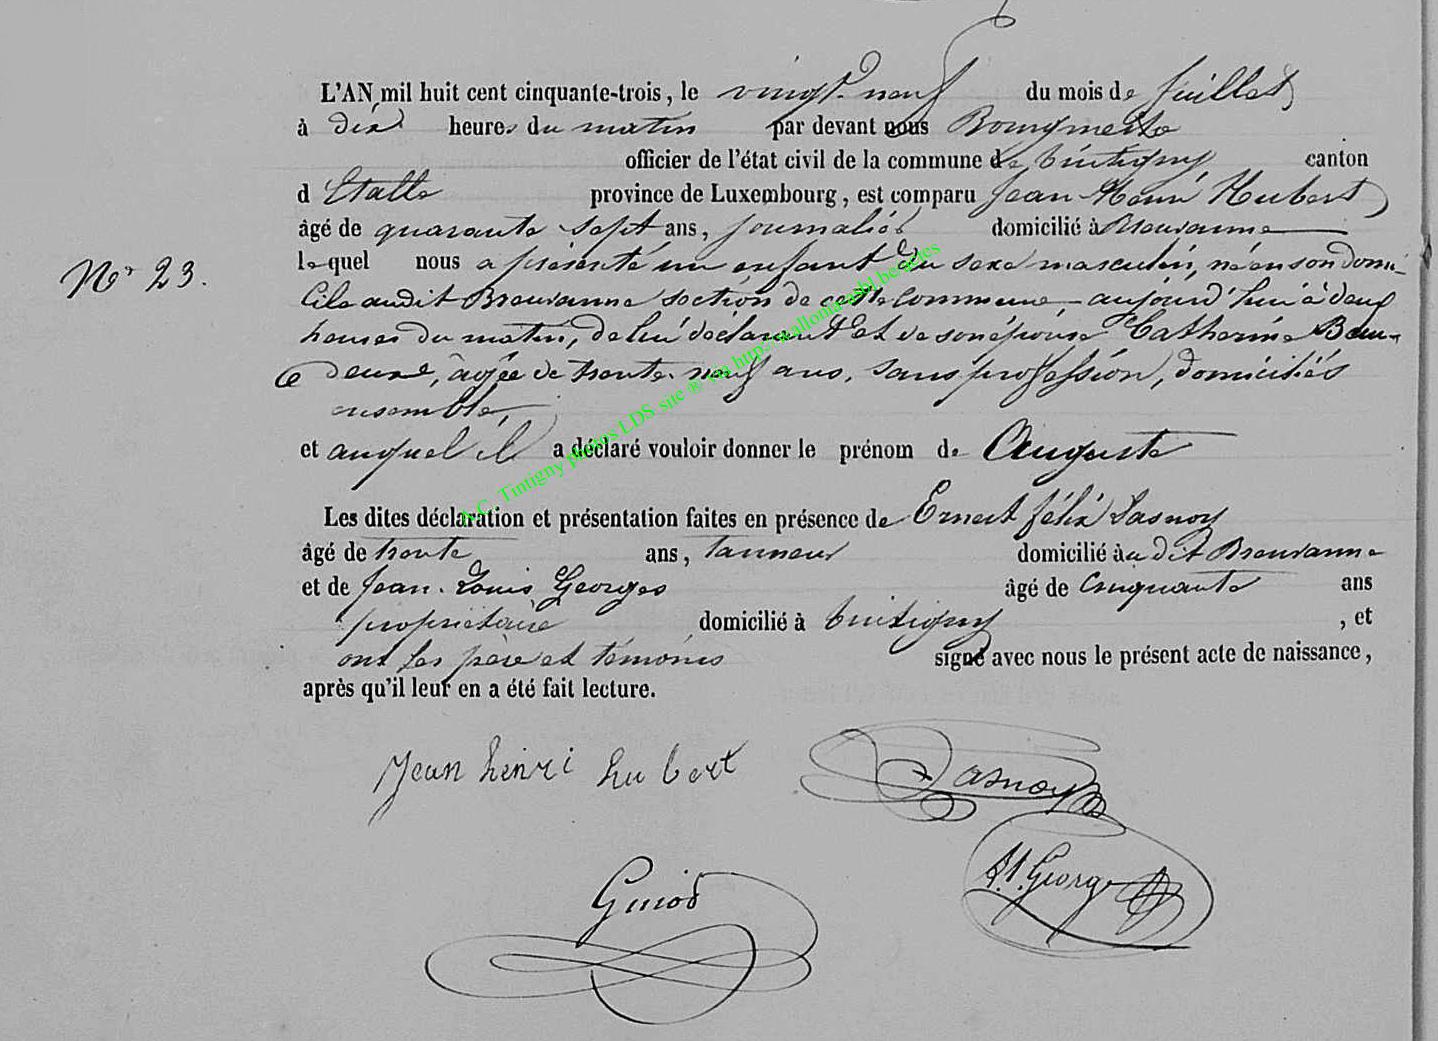 L'AN mil huit cent cinquante-trois, le vingt-neuf du mois de Juillet
à dix heures du matin par devant nous Bourgmestre
officier de l'état civil de la commune de Tintigny canton
d'Etalle province de Luxembourg, est comparu Jean Henri Hubert
âgé de quarante sept ans, journalier domicilié à Breuvanne
lequel nous a présenté un enfant du sexe masculin, né en son domi-
Nr 23.
cile audit Breuvanne section de cette commune aujourd'hui à deux
heures du matin, de lui déclarant et de son épouse Catherine
âgée de trente neuf ans, sans profession, domiciliés
ensemble,
et auquel il a déclaré vouloir donner le prénom de Auguste
Les dites déclaration et présentation faites en présence de Ernest félix Lasnoy
âgé de trente ans, tanneur domicilié audit Breuvanne
et de Jean-Louis Georges âgé de cinquante ans
propriétaire domicilié à Tintigny, et
ont les père et témoins signé avec nous le présent acte de naissance,
après qu'il leur en a été fait lecture.
Jean henri hubert Lasnoy
Georges
A.C. Tintigny photos LDS site ® via http://wallonia-asbl.be/actes